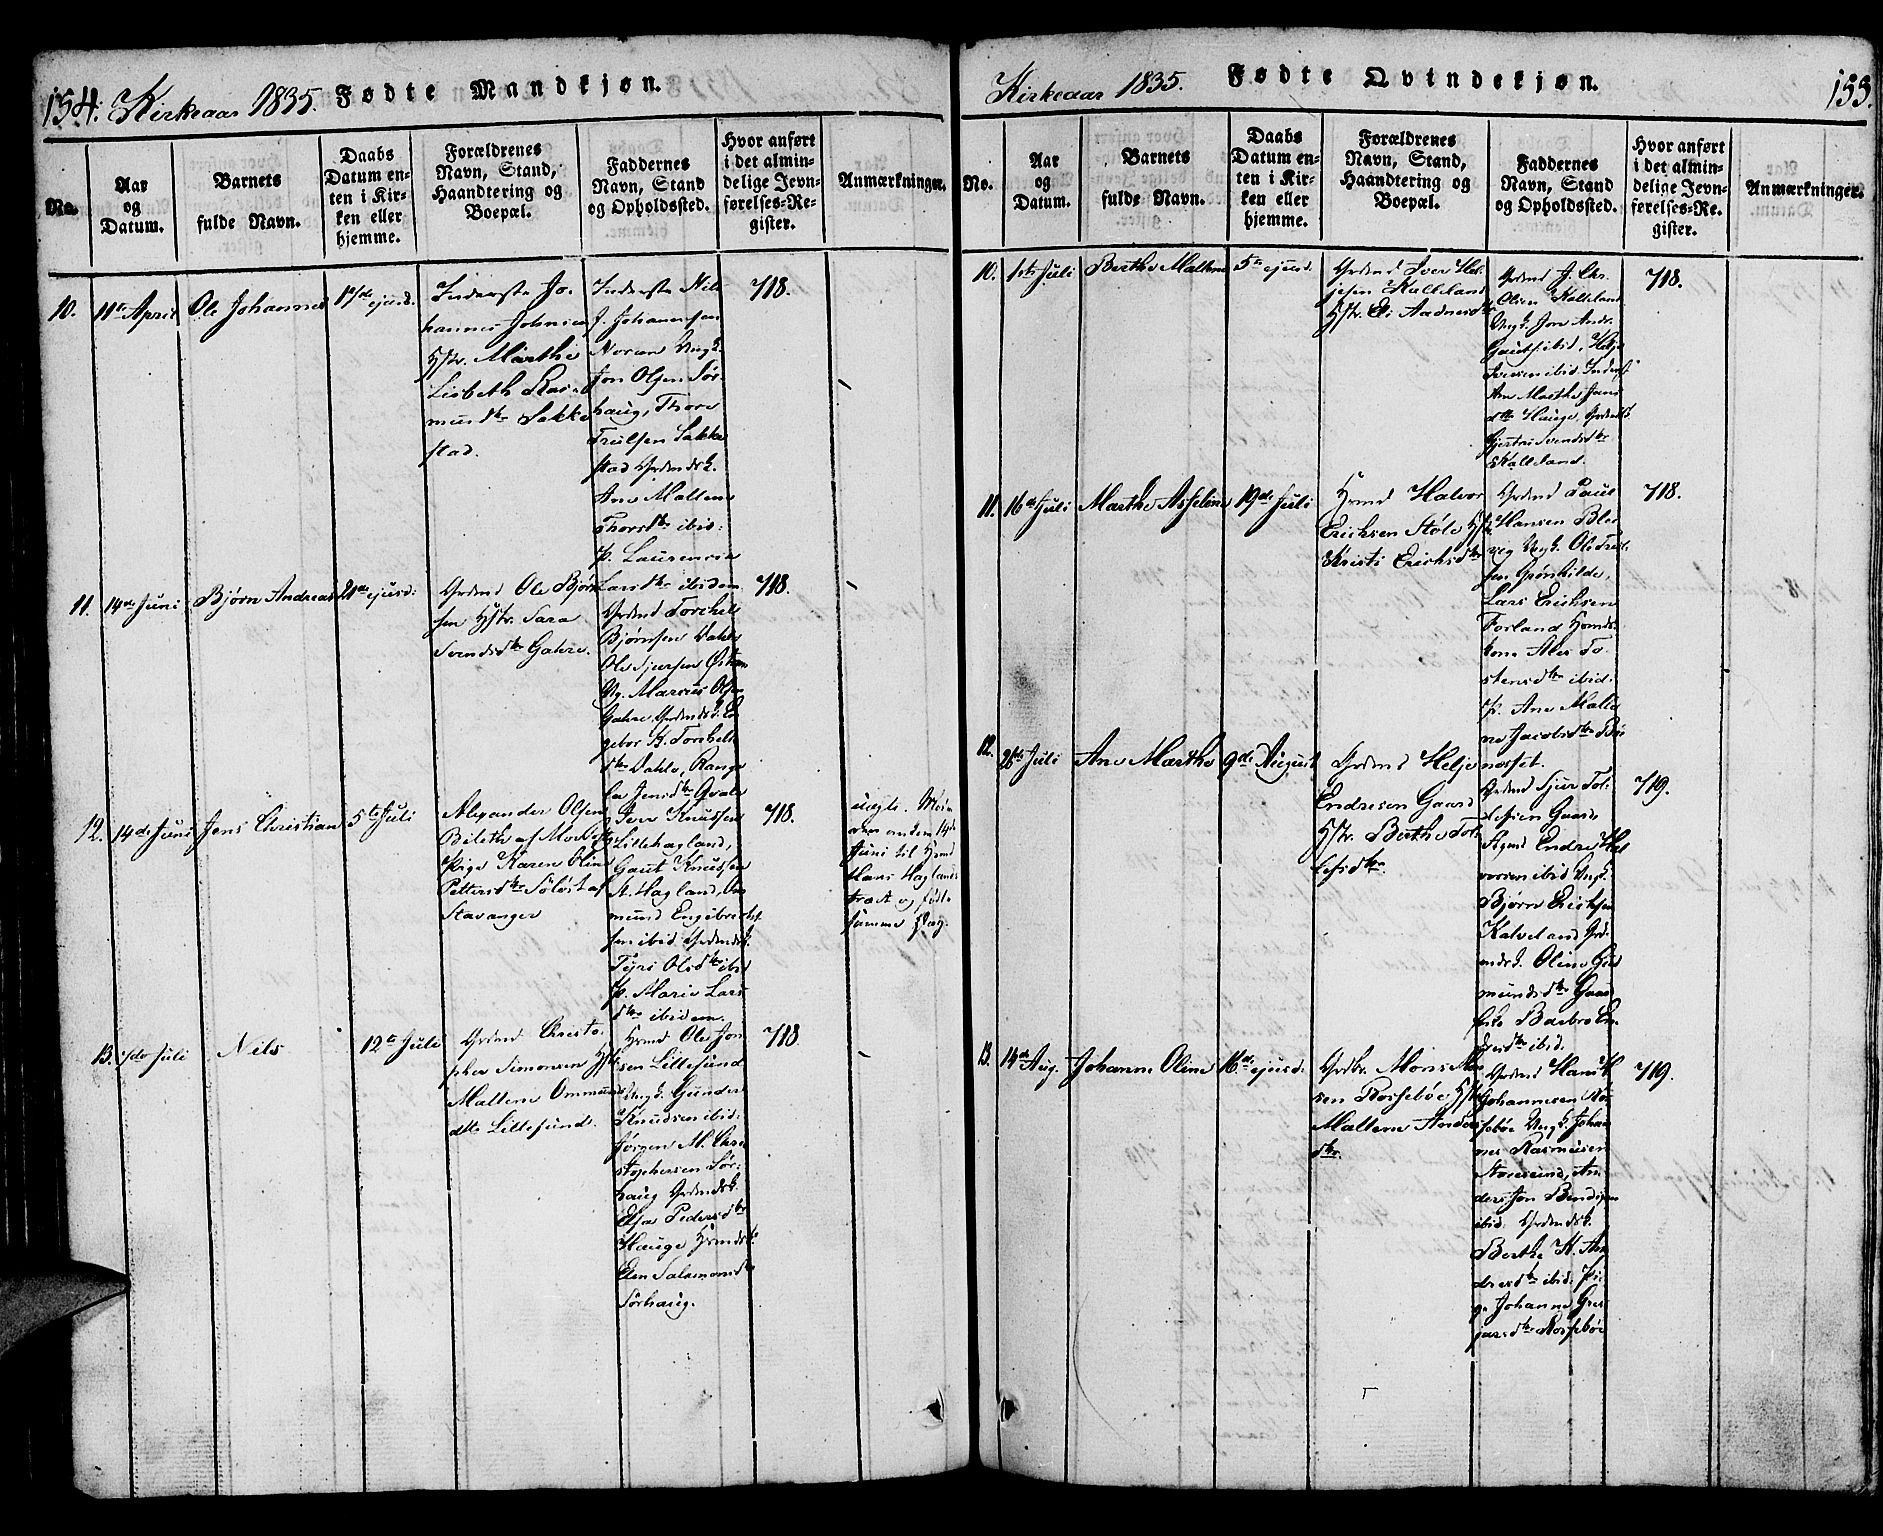 154. Kirkeaar 1835. Fødte Mandkjøn.
No.
Aar
og
Datum.
Barnets
fulde Navn.
Daabs
Datum en-
ten i Kir-
ken eller
hjemme.
Forældrenes
Navn, Stand,
Haandtering og
Boepæl.
Faddernes
Navn, Stand
og Opholdssted.
Hvor anført
i det almin-
delige Jevn-
førelses-Re-
gister.
Anmærkninger.
10.
11te April
Ole Johannes
17de ejusd.
Inderste Jo-
hannes Johnsen
Hstr. Marthe
Lisbeth Ras-
musdtr Sakke
stad.
Inderste Nils
J. Johannesen
Noran Ungk.
Jon Olsen Sør-
haug, Thore
Trulsen Sakke
stad Grdmdsk.
Ane Malene
Thorsdtr ibid:
p. Laurencia
Larsdtr ibidem
718.
11.
14de Juni
Bjørn Andreas
21de ejusd:
Grdmd Ole Bjørn
sen Hstr. Sara
Svendsdtr Gahre.
Grdmd Torchell
Bjørnsen Dahle
Ole Sjursen
Ug. Marcus Olsen
Gahre Grdmdsk. In
gebor K. Torchells
dtr Dahle, Range
la Jensdtr Qvale
718.
12.
14de Juni
Jens Christian
5te Juli
Alexander Olsen
Pige Karen Oline
Pettersdtr af
Stavanger
Iver Knutsen
Lillehagland,
Gaut Knudsen
St. Hagland,
mund Engebrets
sen ibid Grdmdsk.
Tyri Olsdtr ibid
p. Marie Lars
dtr ibidem.
718.
uægte. Mo
deren ankom 14de
Juni til Hrmd
Hans Hagland
træt og fødte
samme Dag.
13.
Juli
Nils
12te Juli
Grdmd Christo
pher Simonsen Hstr
Mallene Ommunds
dtr Lillesund.
Hrmd Ole Jon
sen Lillesund
Ungk. Gunder
Knudsen ibid:
Jørgen M. Chri
stophersen Sør-
haug Grdmdsk.
Pedersdtr
Hauge Hrmdsk.
Elen Salamonsdtr
Sørhaug.
718
Kirkeaar 1835. Fødte Qvindekjøn. 155.
No.
Aar
og
Datum.
Barnets
fulde Navn.
Daabs
Datum en-
ten i Kir-
ken eller
hjemme.
Forældrenes
Navn, Stand,
Haandtering og
Boepæl.
Faddernes
Navn, Stand
og Opholdssted.
Hvor anført
i det almin-
delige Jevn-
førelses-Re-
gister.
Anmærkninger.
10.
1ste Juli
Berthe Mallene
5te ejusd.
Grdmd Iver Hel-
jesen Kalleland
Hstr. Eli Aadnesdtr
Grdmd J. Chr.
Olsen Kalleland
Ungk. Jon Andr.
Gauts. ibid, Helje
Iversen ibid. Inderst
Ane Marthe Jens
dtr Hauge, Grdmdsk.
Gjertrui Svendsdtr
Kalleland.
718.
11.
16de Juli
Marthe Asseline
19de Juli
Hrmd Halvor
Erichsen Støle Hstr
Kristi Erichsdtr
Grdmd Paul
Hansen Ble-
vig Ungk. Ole
sen Grønhilde,
Lars Erichsen
Forland Hrmds
kone Ales To-
stensdtr ibid:
p. Ane Malle
ne Jacobsdtr Bø
nesset.
718.
12.
26de Juli
Ane Marthe
9de August
Grdmd Helje
Endresen Gaard
Hstr. Berthe Tol-
lefsdtr.
Grdmd Sjur Tol-
lefsen Gaard
Endre Hal
vorsen ibid Ungk.
Bjørn Erichsen
Kalveland Grd-
mdsk. Oline Gud
mundsdtr Gaard
Pike Barbro En-
dresdtr ibid.
719.
13.
14de Aug.
Johanne Oline
16de ejusd.
Grdbr. Mons Mon
sen Rossebøe Hstr
Mallene Anders
dtr.
Grdmd Hans H
Johannesen Ros-
sebøe Ungk. Johan
nes Rasmusen
Storesund, An-
ders Jon Bendixen
ibid. Grdmdsk.
Berthe K. An-
dersdtr ibid. Pi-
ge Johanne Gre-
jarsdtr Rossebøe
719.